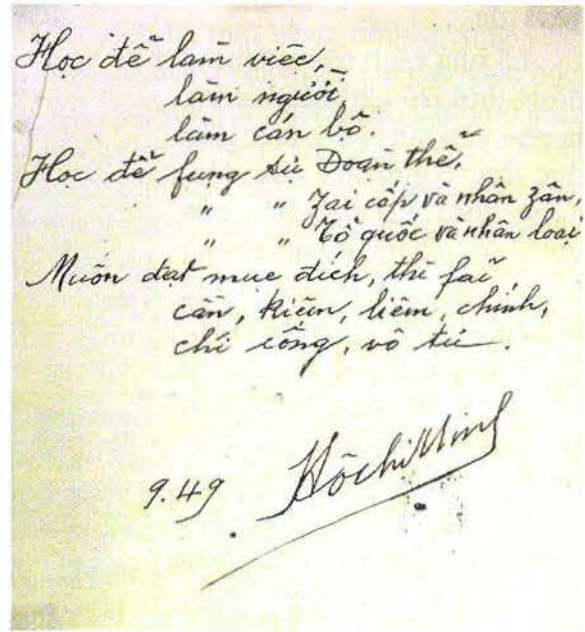 Học để làm việc,
làm người,
làm cán bộ.
Học để fụng sự Đoàn thể,
" " Jai cấp và nhân zân,
" " Tổ quốc và nhân loại
Muốn đạt mục đích, thì fải
cần, kiệm, liêm, chính,
chí công, vô tư.
9.49 HồchíMinh